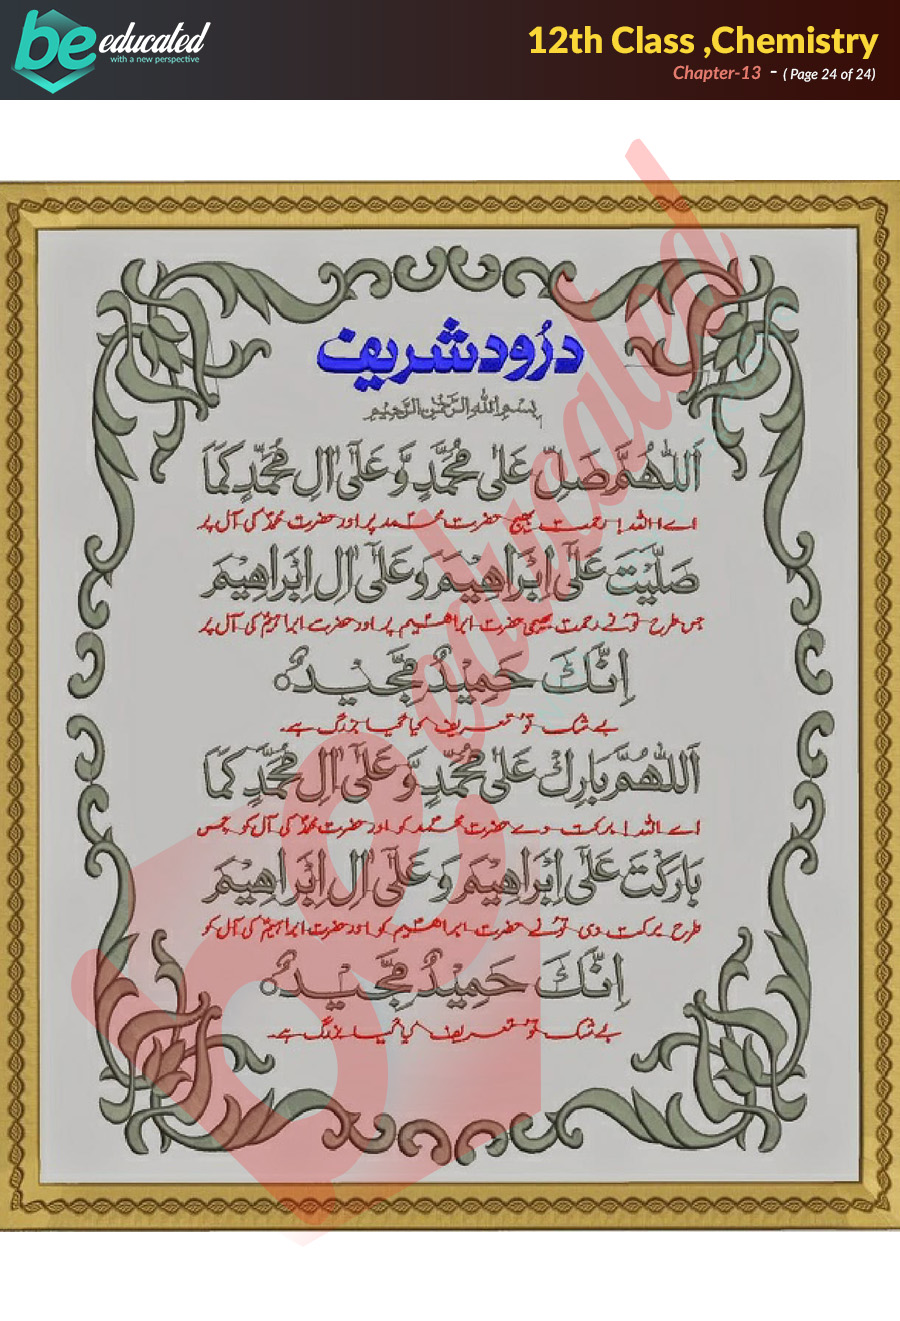 be educated
with a new perspective
12th Class ,Chemistry
Chapter-13 - ( Page 24 of 24)
درُود شریف
بِسْمِ اللهِ الرَّحْمٰنِ الرَّحِيْمِ
اَللّٰهُمَّ صَلِّ عَلٰى مُحَمَّدٍ وَّعَلٰٓى اٰلِ مُحَمَّدٍ كَمَا
اے اللہ! رحمت بھیج حضرت محمد پر اور حضرت محمدؐ کی آل پر
صَلَّيْتَ عَلٰٓى اِبْرَاهِيْمَ وَعَلٰٓى اٰلِ اِبْرَاهِيْمَ
جس طرح تو نے رحمت بھیجی حضرت ابراھیم پر اور حضرت ابراہیمؑ کی آل پر
اِنَّكَ حَمِيْدٌ مَّجِيْدٌ ہ
بے شک تو تعریف کیا گیا بزرگ ہے۔
اَللّٰهُمَّ بَارِكْ عَلٰى مُحَمَّدٍ وَّعَلٰٓى اٰلِ مُحَمَّدٍ كَمَا
اے اللہ! برکت دے حضرت محمد کو اور حضرت محمدؐ کی آل کو جس
بَارَكْتَ عَلٰٓى اِبْرَاهِيْمَ وَعَلٰٓى اٰلِ اِبْرَاهِيْمَ
طرح برکت دی تو نے حضرت ابراھیم کو اور حضرت ابراہیمؑ کی آل کو
اِنَّكَ حَمِيْدٌ مَّجِيْدٌ ہ
بے شک تو تعریف کیا گیا بزرگ ہے۔
be educated